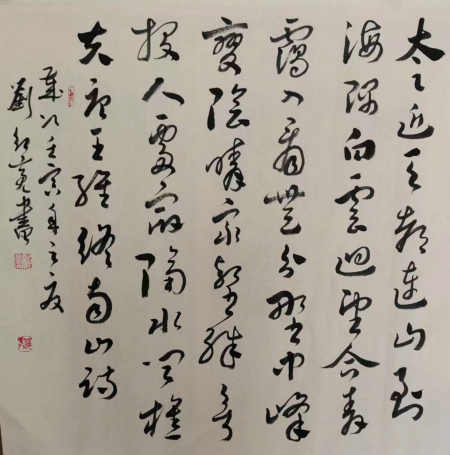 太乙近天都連山到
海隅白雲迴望合青
靄入看無分野中峰
變陰晴衆壑殊欲
投人處宿隔水問樵
夫唐王維終南山詩
歲次壬寅年之夏
劉紅亮書